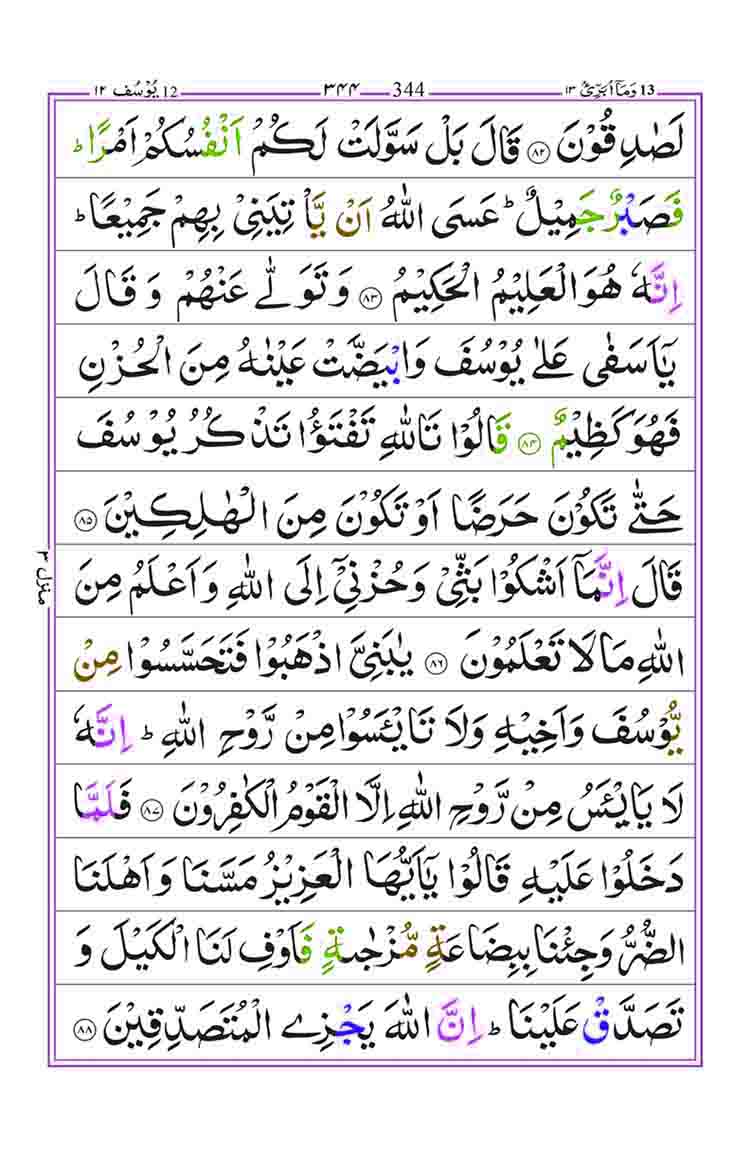 13 وَمَاۤ اُبَرِّئُ ١٣ 344 ٣٤٤ 12 يُوْسُف ١٢
لَصٰدِقُوْنَ ﴿٨٢﴾ قَالَ بَلْ سَوَّلَتْ لَكُمْ اَنْفُسُكُمْ اَمْرًا ؕ
فَصَبْرٌ جَمِيْلٌ ؕ عَسَى اللّٰهُ اَنْ يَّاْتِيَنِيْ بِهِمْ جَمِيْعًا ؕ
اِنَّهٗ هُوَ الْعَلِيْمُ الْحَكِيْمُ ﴿٨٣﴾ وَتَوَلّٰى عَنْهُمْ وَقَالَ
يٰۤاَسَفٰى عَلٰى يُوْسُفَ وَابْيَضَّتْ عَيْنٰهُ مِنَ الْحُزْنِ
فَهُوَ كَظِيْمٌ ﴿٨٤﴾ قَالُوْا تَاللّٰهِ تَفْتَؤُا تَذْكُرُ يُوْسُفَ
حَتّٰى تَكُوْنَ حَرَضًا اَوْ تَكُوْنَ مِنَ الْهٰلِكِيْنَ ﴿٨٥﴾
قَالَ اِنَّمَاۤ اَشْكُوْا بَثِّيْ وَحُزْنِيْۤ اِلَى اللّٰهِ وَاَعْلَمُ مِنَ
اللّٰهِ مَا لَا تَعْلَمُوْنَ ﴿٨٦﴾ يٰبَنِيَّ اذْهَبُوْا فَتَحَسَّسُوْا مِنْ
يُّوْسُفَ وَاَخِيْهِ وَلَا تَايْـَٔسُوْا مِنْ رَّوْحِ اللّٰهِ ؕ اِنَّهٗ
لَا يَايْـَٔسُ مِنْ رَّوْحِ اللّٰهِ اِلَّا الْقَوْمُ الْكٰفِرُوْنَ ﴿٨٧﴾ فَلَمَّا
دَخَلُوْا عَلَيْهِ قَالُوْا يٰۤاَيُّهَا الْعَزِيْزُ مَسَّنَا وَاَهْلَنَا
الضُّرُّ وَجِئْنَا بِبِضَاعَةٍ مُّزْجٰىةٍ فَاَوْفِ لَنَا الْكَيْلَ وَ
تَصَدَّقْ عَلَيْنَا ؕ اِنَّ اللّٰهَ يَجْزِي الْمُتَصَدِّقِيْنَ ﴿٨٨﴾
منزل ٣